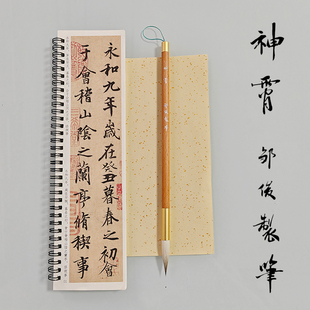 神霄邹俊製筆
永和九年歲在癸丑暮春之初會
于會稽山陰之蘭亭脩稧事